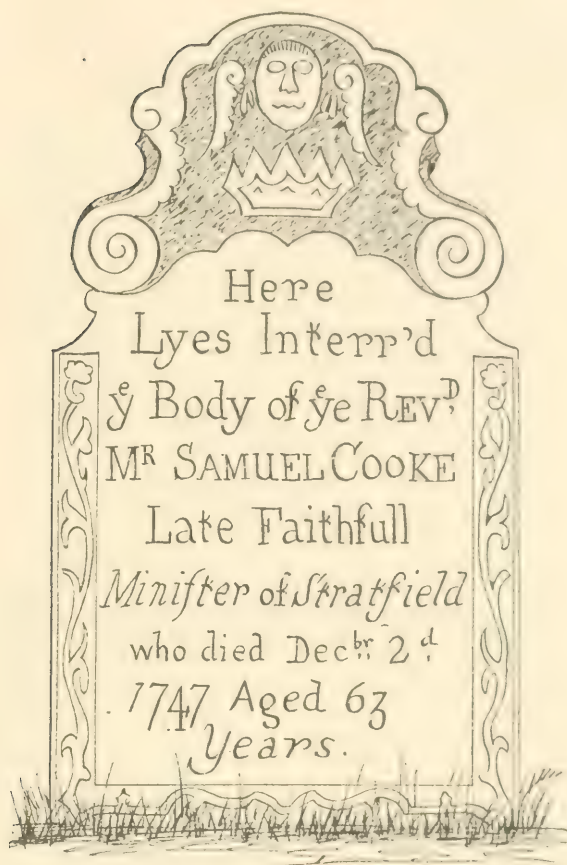 Here
Lyes Interr'd
yᵉ Body of yᵉe REVᴰ.
Mᴿ SAMUEL COOKE
Late Faithfull
Miniſter of Stratfield
who died Decᵇʳ: 2ᵈ.
1747 Aged 63
Years.